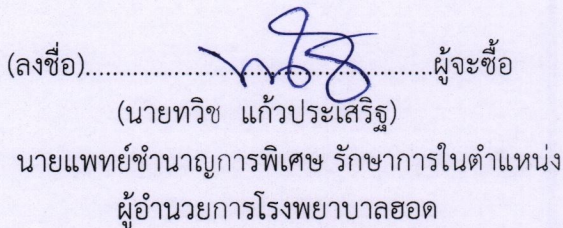 (ลงชื่อ)..................................................ผู้จะซื้อ
(นายทวิช แก้วประเสริฐ)
นายแพทย์ชำนาญการพิเศษ รักษาการในตำแหน่ง
ผู้อำนวยการโรงพยาบาลฮอด